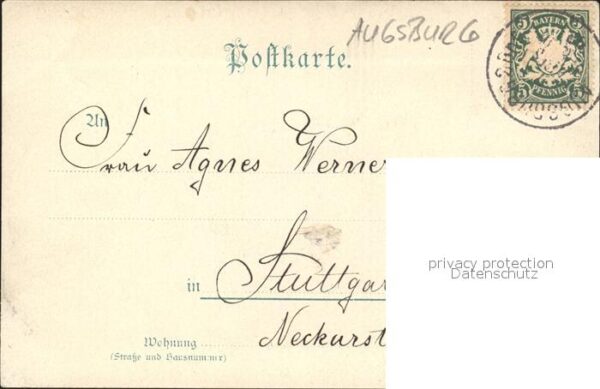 AUGSBURG
Postkarte.
BAYERN
5 5
PFENNIG
An
Frau Agnes Werner
privacy protection
Datenschutz
in Stuttgar
Neckarst
Wohnung
(Straße und Hausnummer)